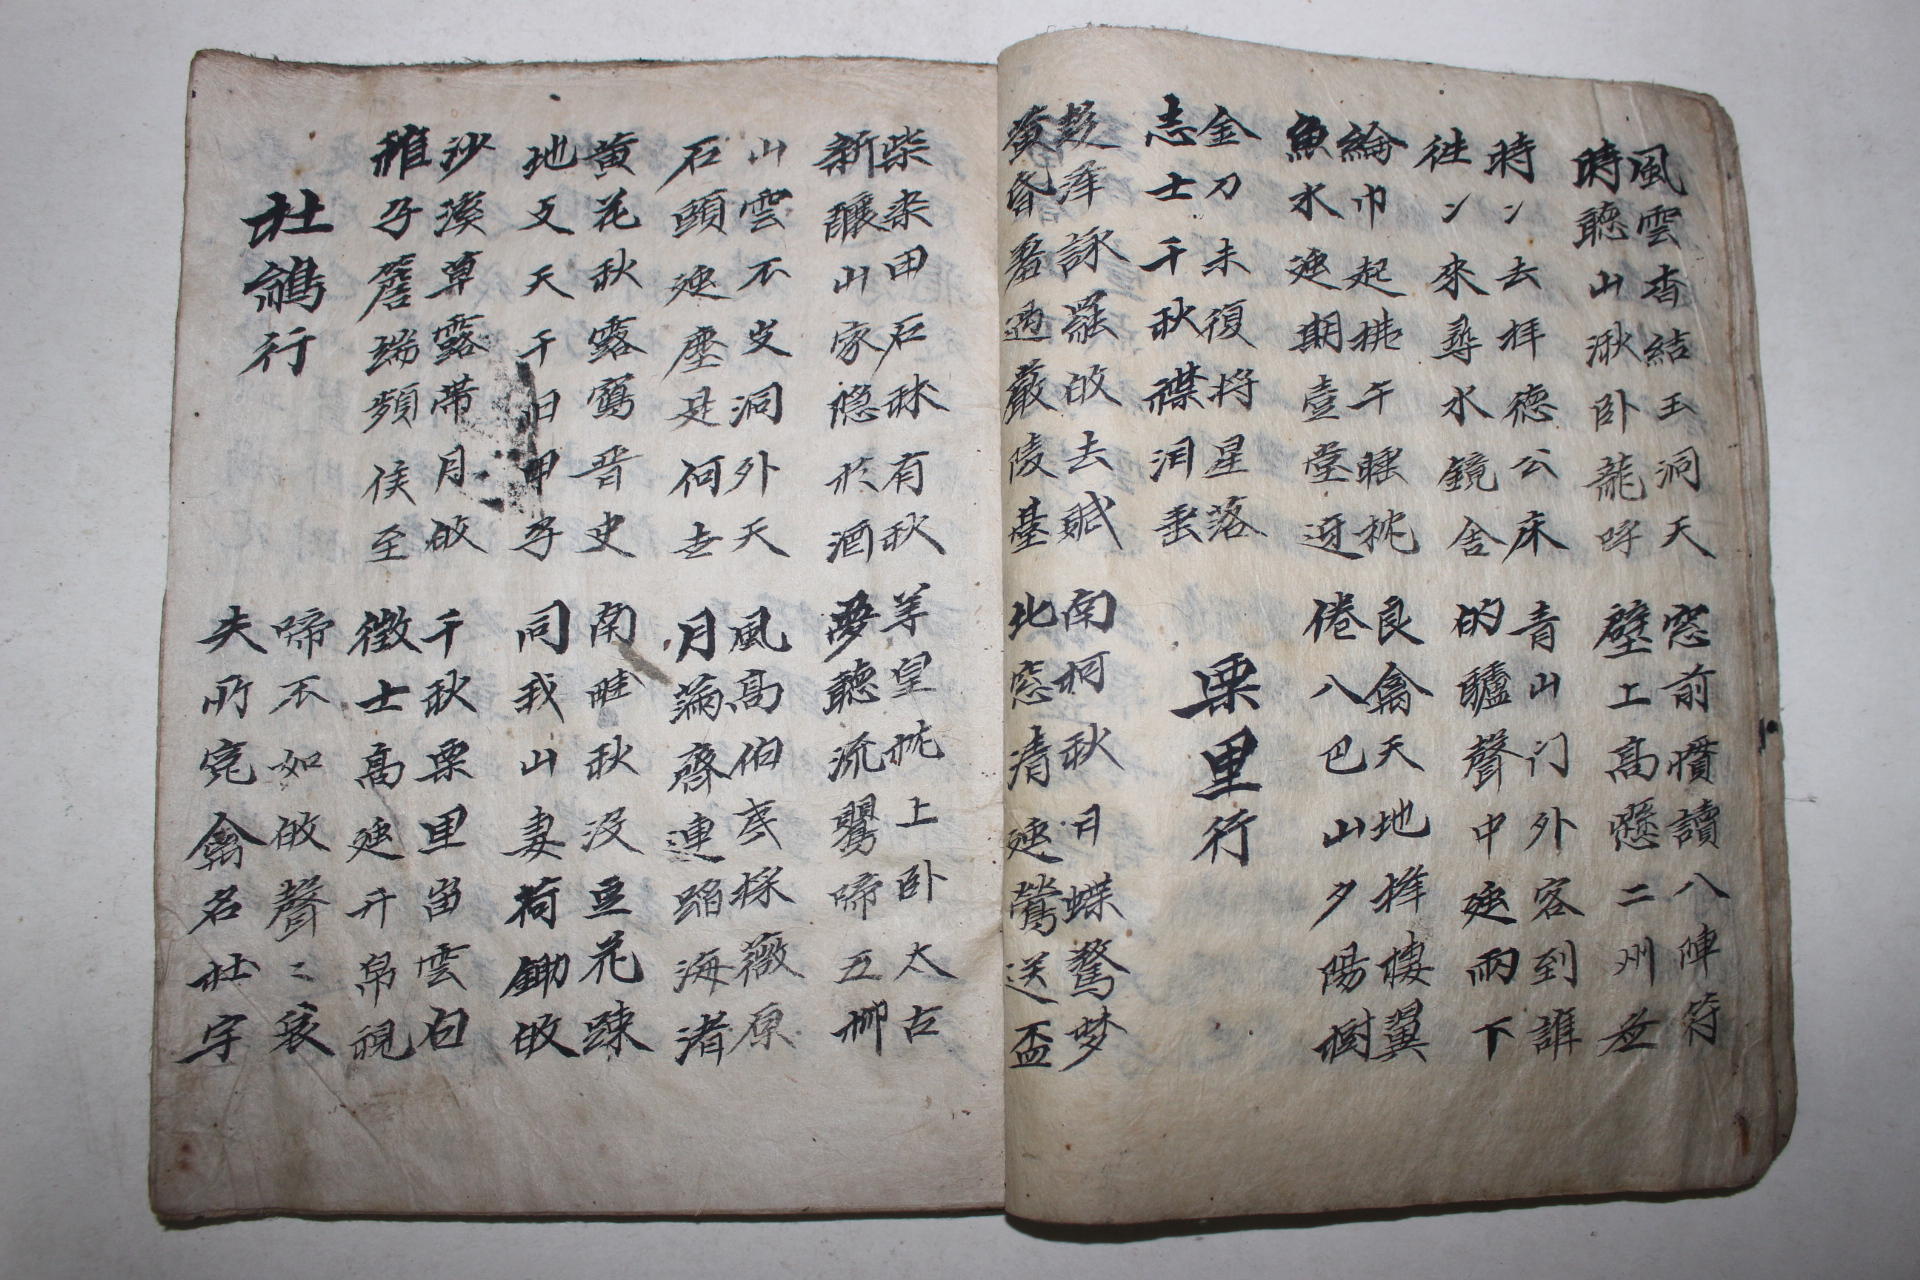 風雲杳結玉洞天
時聽山湫臥龍呼
窓前慣讀八陣符
壁上高懸二州無
時〻去拜德公床
徃〻來尋水鏡舍
青山门外客到誰
的驢聲中迎雨下
綸巾起推午睡枕
魚水迎期臺臺迓
良禽天地擇棲翼
倦八巴山夕陽樹
金刀未復將星落
志士千秋襟泪垂
栗里行
趍津詠罷故去賦
黃昏羣過嚴陵基
南柯秋月蝶驚梦
北窓清迎鶯送盃
柴桑田石秫有秋
新釀山家隱於酒
羊皇枕上卧太古
夢聽流鸎啼五柳
山雲不出洞外天
石頭迎塵是何世
風高伯虎採薇原
月滿齊連蹈海渚
黃花秋露寫晉史
地又天千旧甲子
南畦秋没豆花踈
同我山妻荷鋤故
沙溪草露帶月故
稚子簷端頻候至
千秋栗里留雲白
徵士高迎升帛視
杜鵑行
啼不如故聲〻哀
夫所寃禽名杜宇